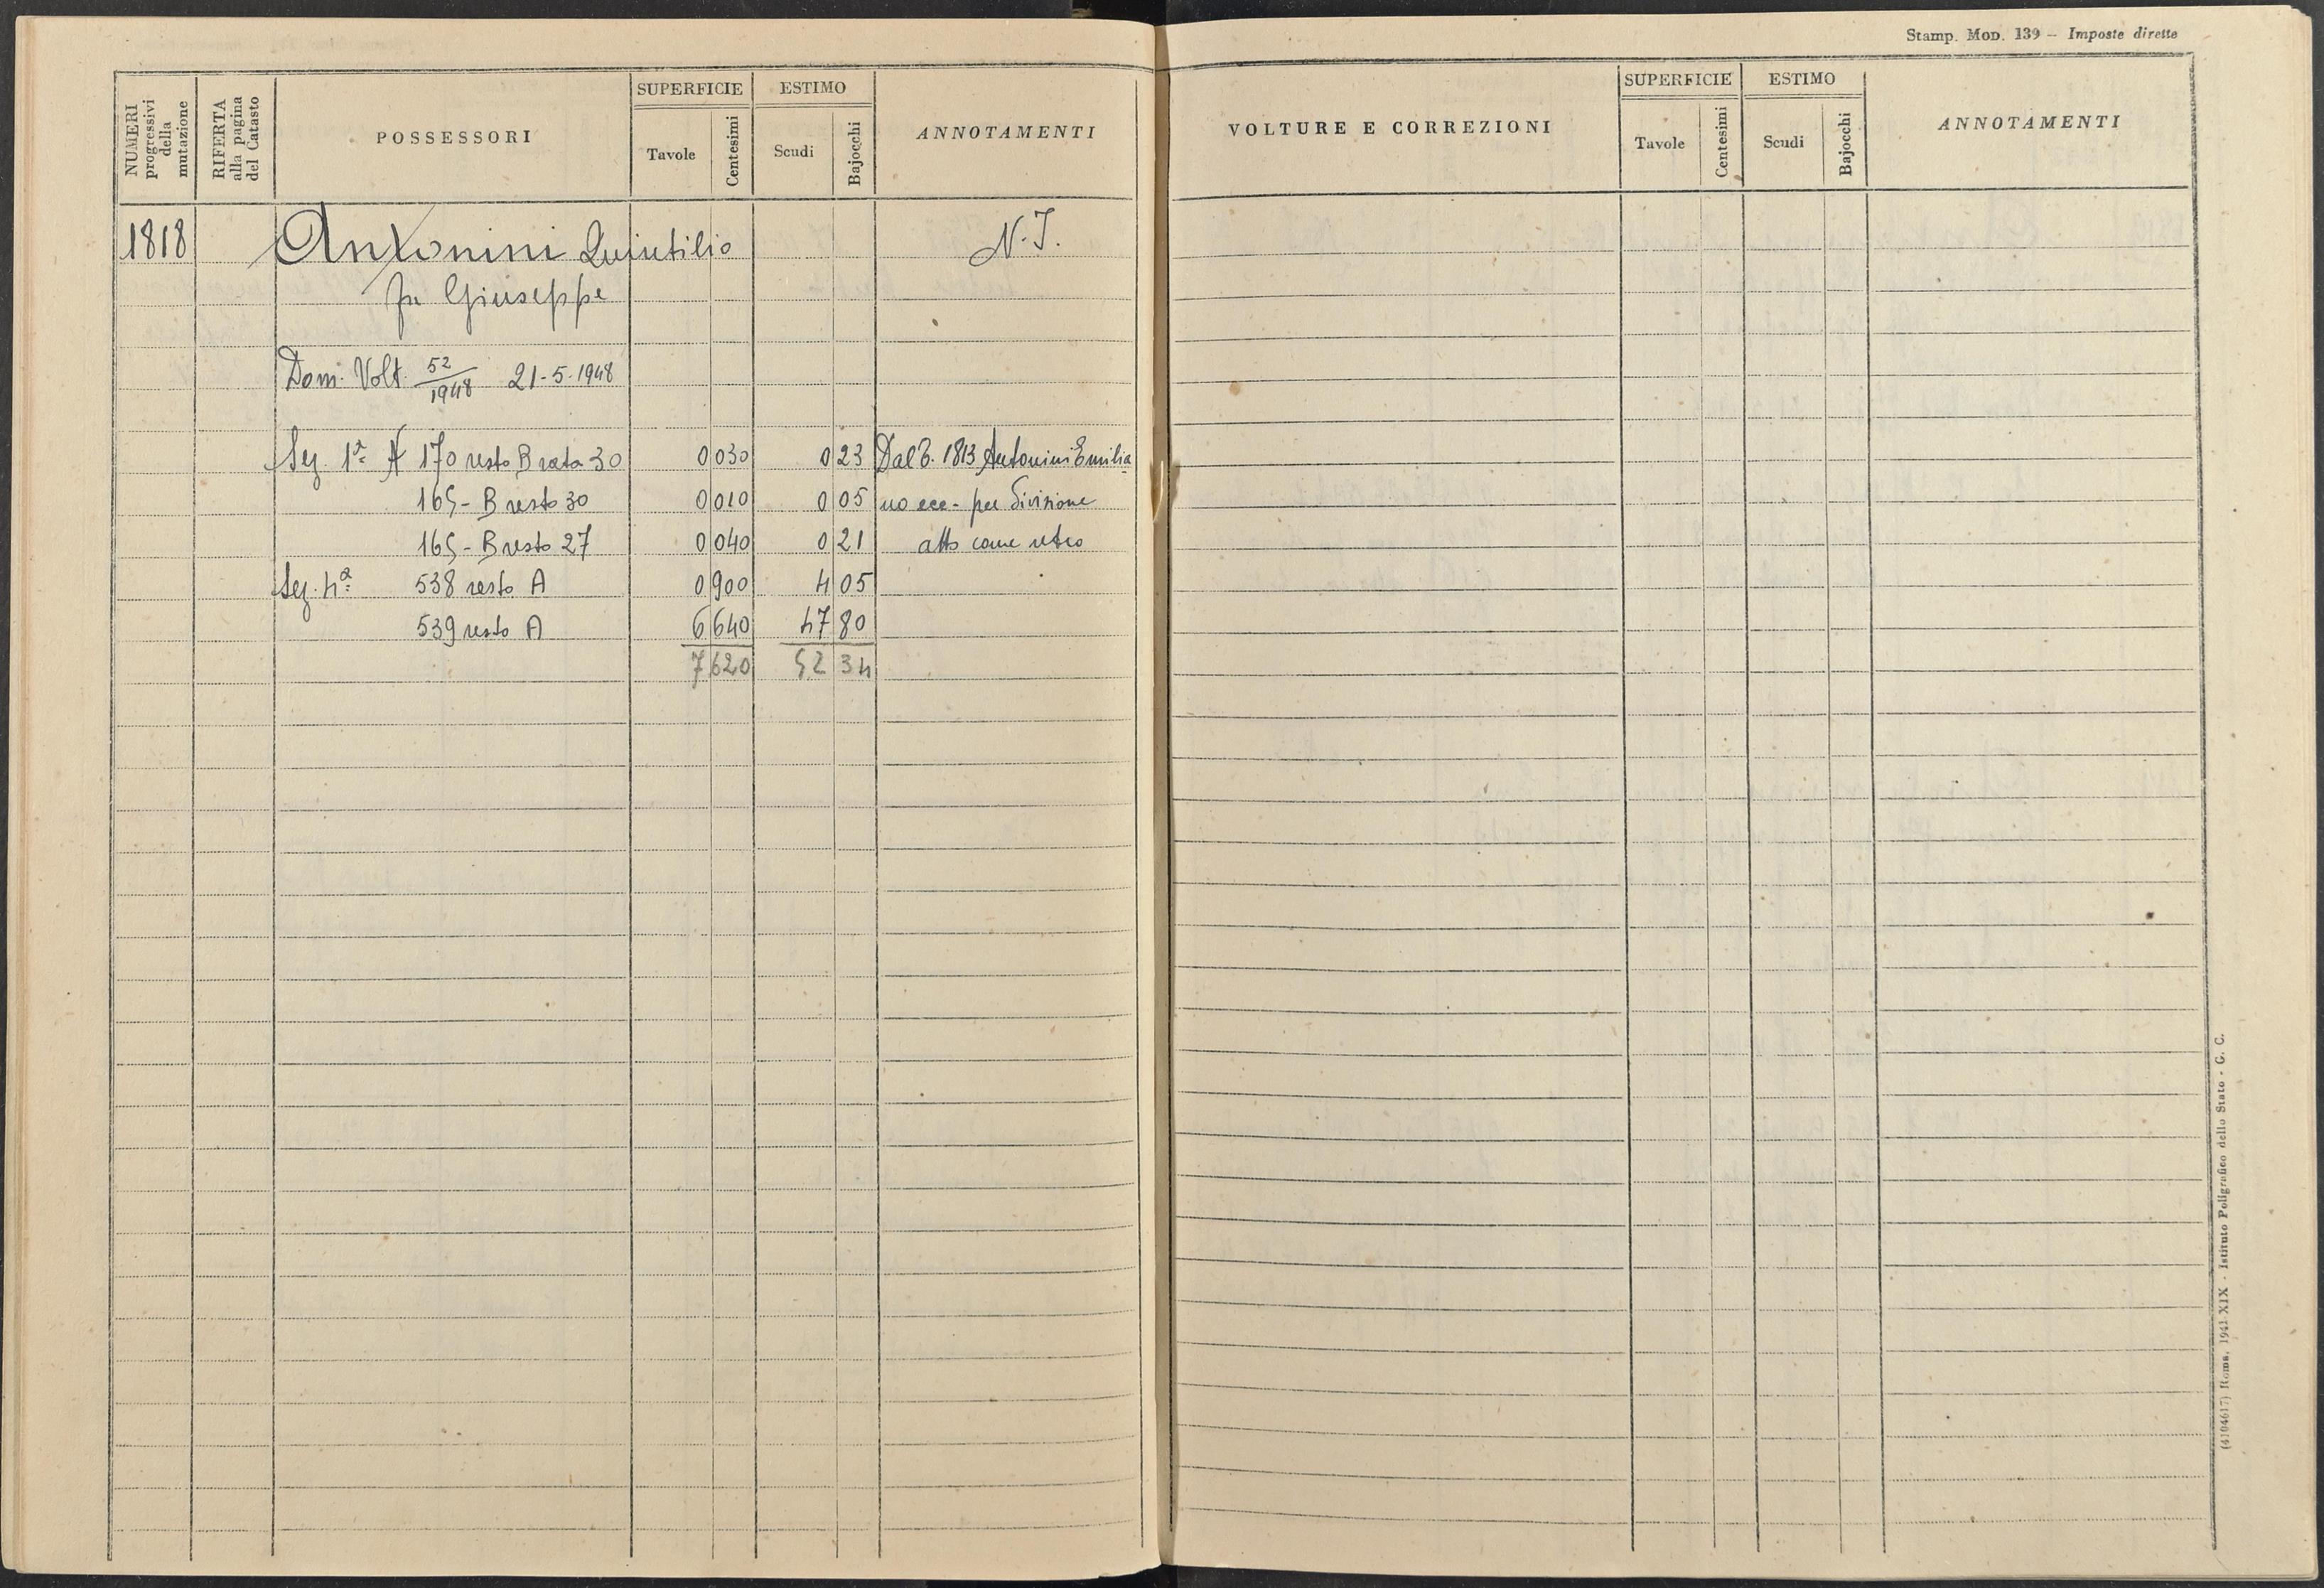 Stamp. Mod. 139 – Imposte dirette
NUMERI progressivi della mutazione
RIFERTA alla pagina del Catasto
POSSESSORI
SUPERFICIE
Tavole
Centesimi
ESTIMO
Scudi
Bajocchi
ANNOTAMENTI
1818 Antonini Quintilio N.I.
fu Giuseppe
Dom. Volt. 52/1948 21-5-1948
Sez. 1ª 170 resto B rata 30 0 030 0 23 Dal 1813 Antonini Emilia
165 - B resto 30 0 010 0 05 no ecc - per divisione
165 - B resto 27 0 040 0 21 atto come retro
Sez. 4ª 538 resto A 0 900 4 05
539 resto A 6 640 47 80
7 620 52 34
VOLTURE E CORREZIONI
SUPERFICIE
Tavole
Centesimi
ESTIMO
Scudi
Bajocchi
ANNOTAMENTI
(4104617) Roma, 1941-XIX - Istituto Poligrafico dello Stato - G. C.